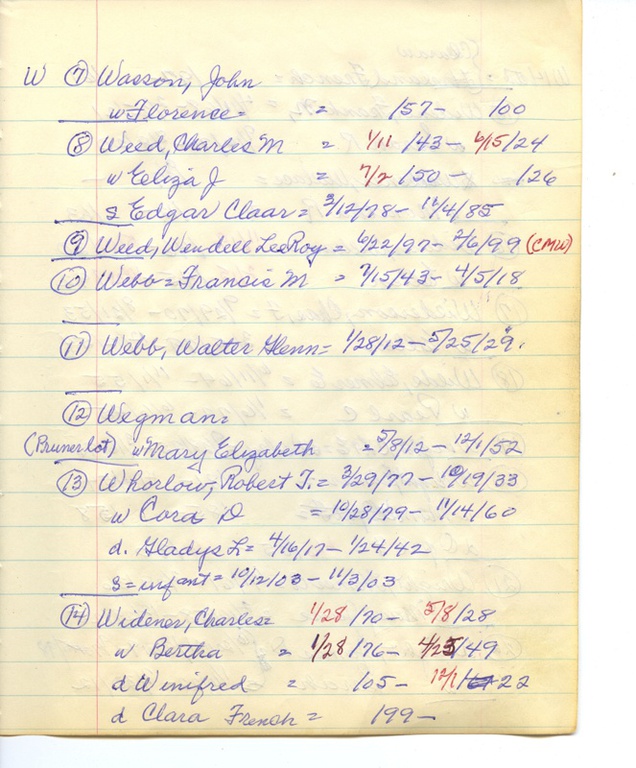 W ⑦ Wasson, John
w Florence = = /57- /00
⑧ Weed, Charles M = 1/11/43 - 6/15/24
w Eeliza J = 7/2/50 - /26
s Edgar Claar = 3/12/78 - 12/4/85
⑨ Weed, Wendell LeeRoy = 6/22/97 - 2/6/99 (CMW)
⑩ Webb = Francis M = 7/15/43 - 4/5/18
⑪ Webb, Walter Glenn = 1/28/12 - 5/25/29.
⑫ Wegman =
(Bruner lot) w Mary Elizabeth = 5/8/12 - 12/1/52
⑬ Whorlow, Robert T. = 3/29/77 - 10/19/33
w Cora D = 10/28/79 - 11/14/60
d. Gladys L = 4/16/17 - 1/24/42
s = infant = 10/12/03 - 11/3/03
⑭ Widener, Charles = 1/28/70 - 5/8/28
w Bertha = 1/28/76 - 4/25/49
d Winifred = /05 - 12/1/22
d Clara French = /99 -